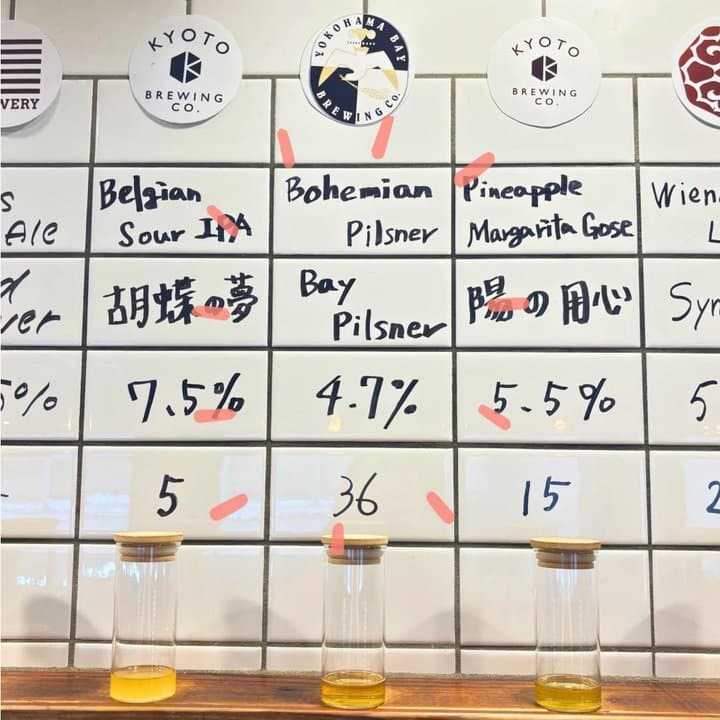 VERY
KYOTO
BREWING
CO.
YOKOHAMA BAY
BREWING Co.
KYOTO
BREWING
CO.
Ale
Belgian
Sour IPA
Bohemian
Pilsner
Pineapple
Margarita Gose
Wien
L
胡蝶の夢
Bay
Pilsner
陽の用心
Syn
5%
7.5%
4.7%
5.5%
5
5
36
15
2